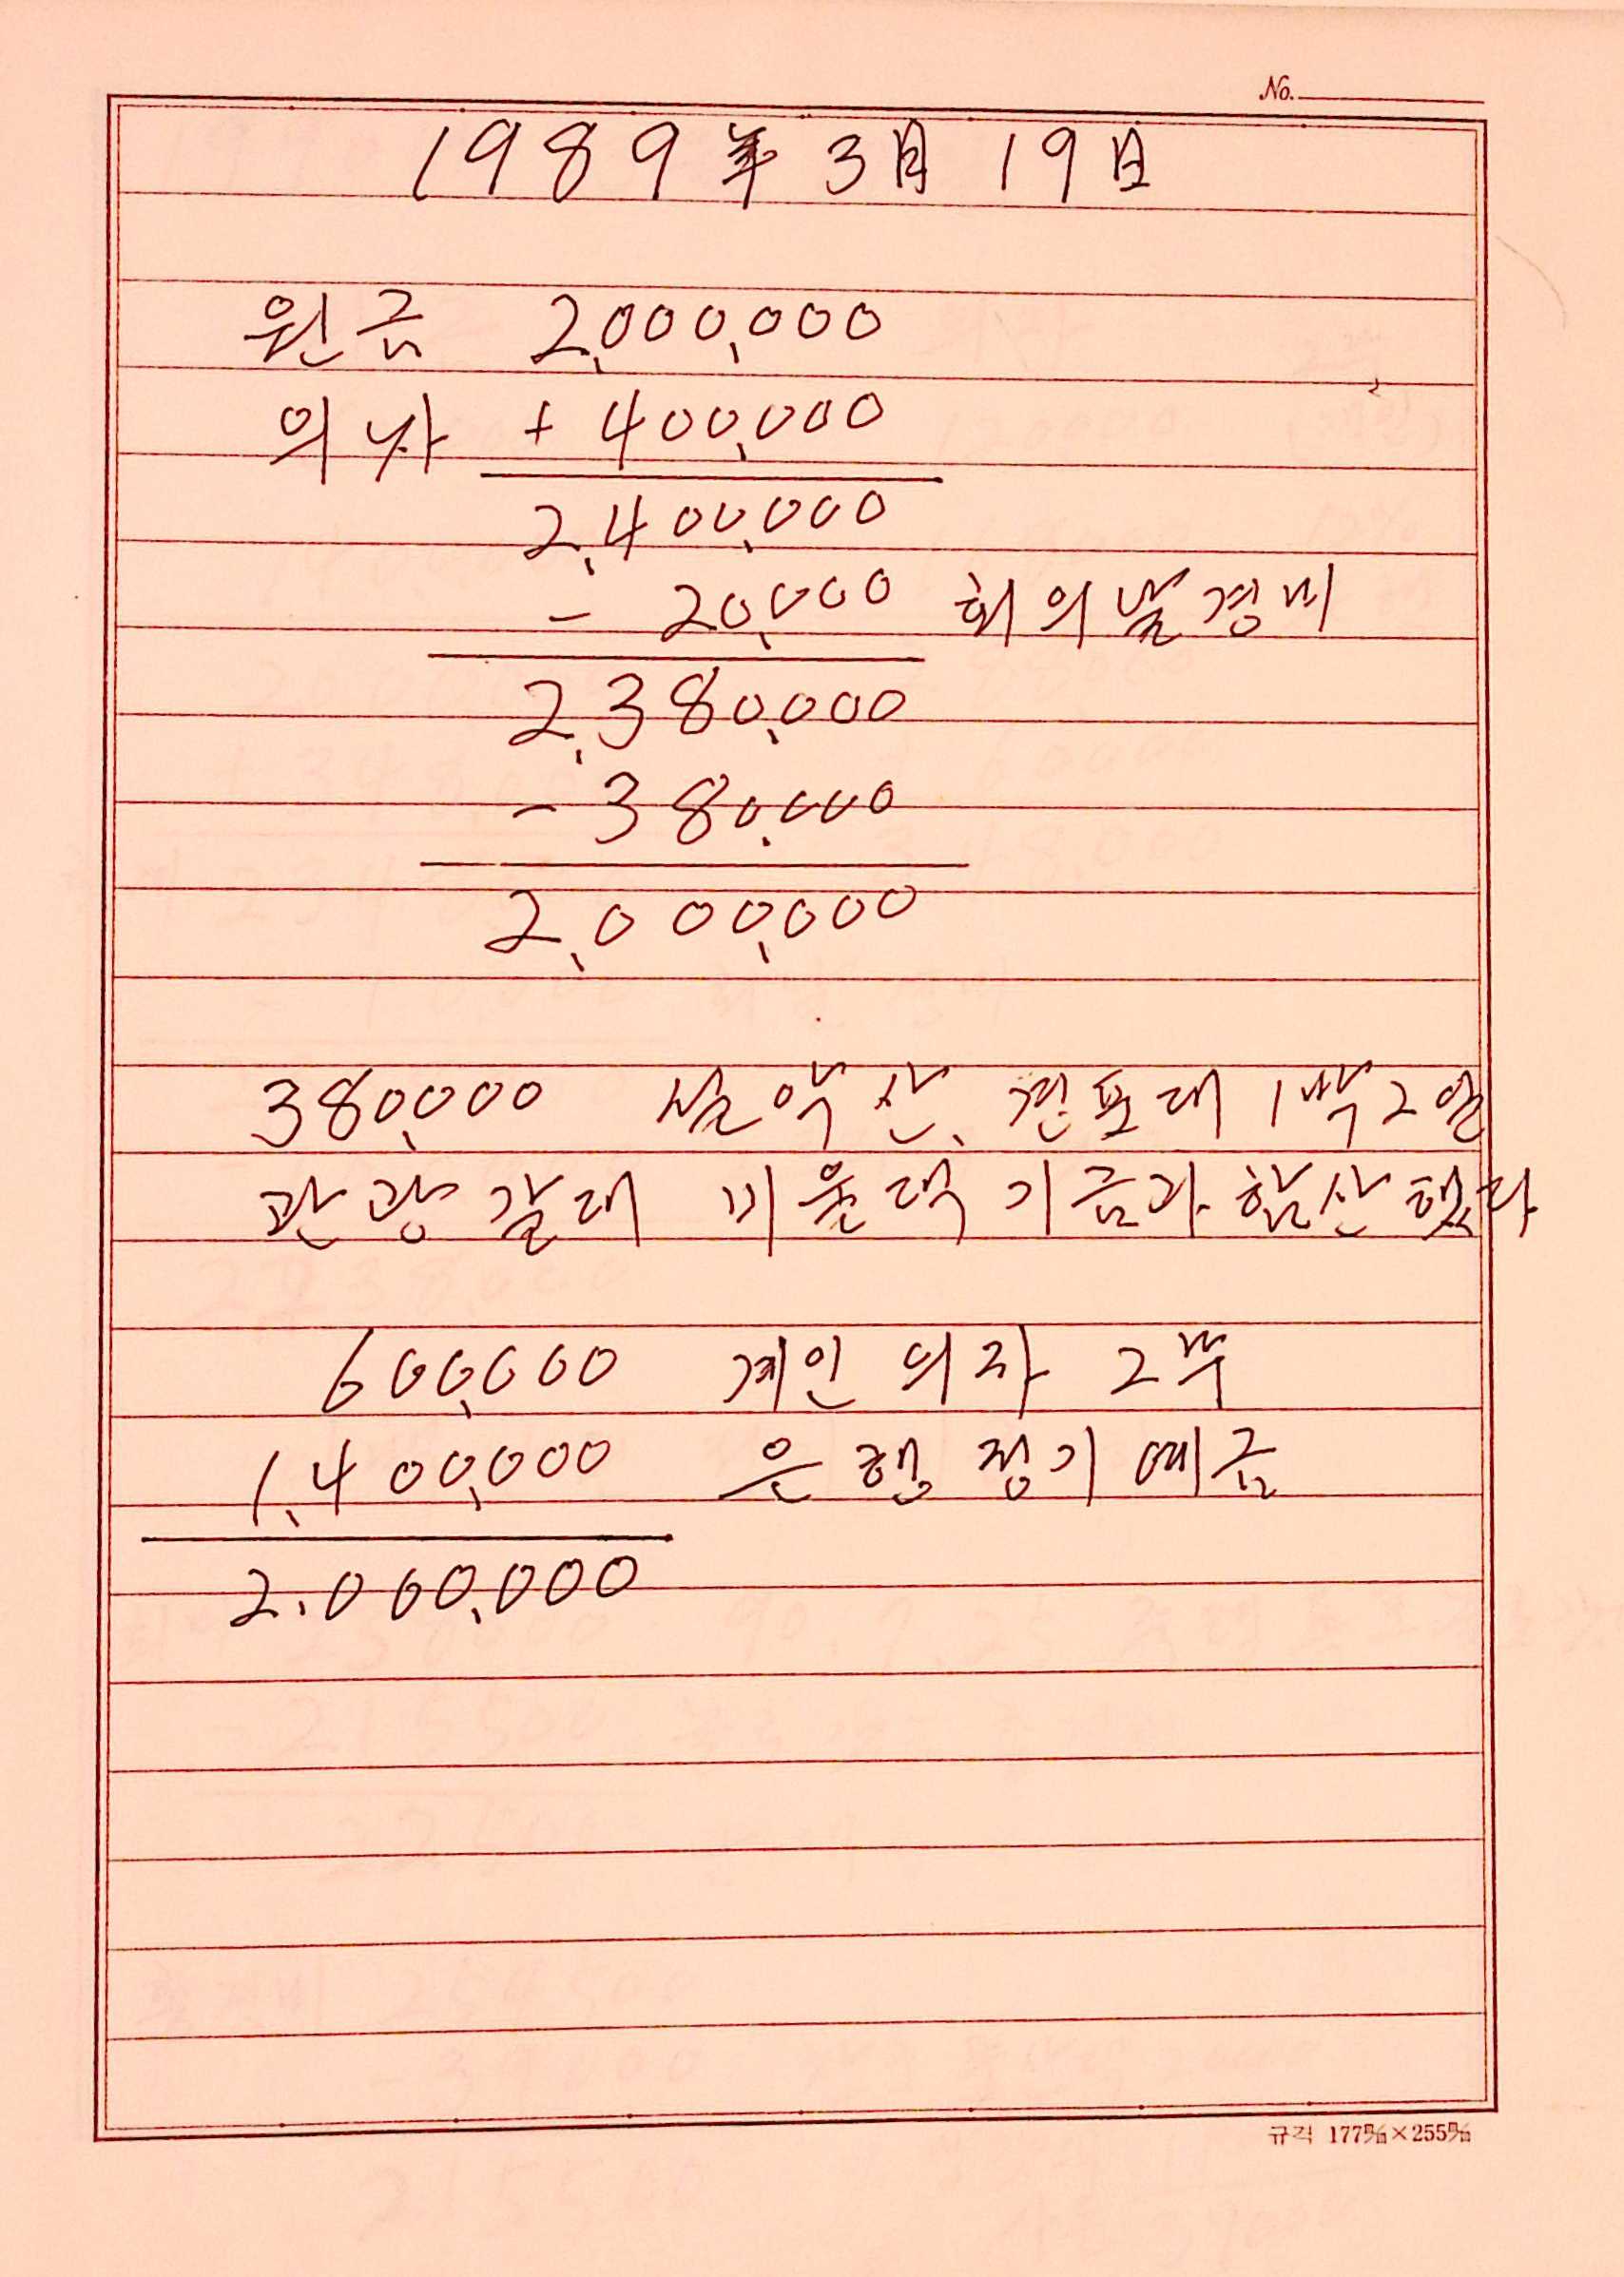 No.
1989年 3月 19日
원금 2,000,000
의자 + 400,000
2,400,000
- 20,000 회의날경비
2,380,000
- 380,000
2,000,000
380,000 설악산, 경포대 1박2일
관광갈때 비율댁 기금과 합산했다
600,000 계인 의자 2부
1,400,000 은행 정기예금
2.000,000
규격 177㎜×255㎜